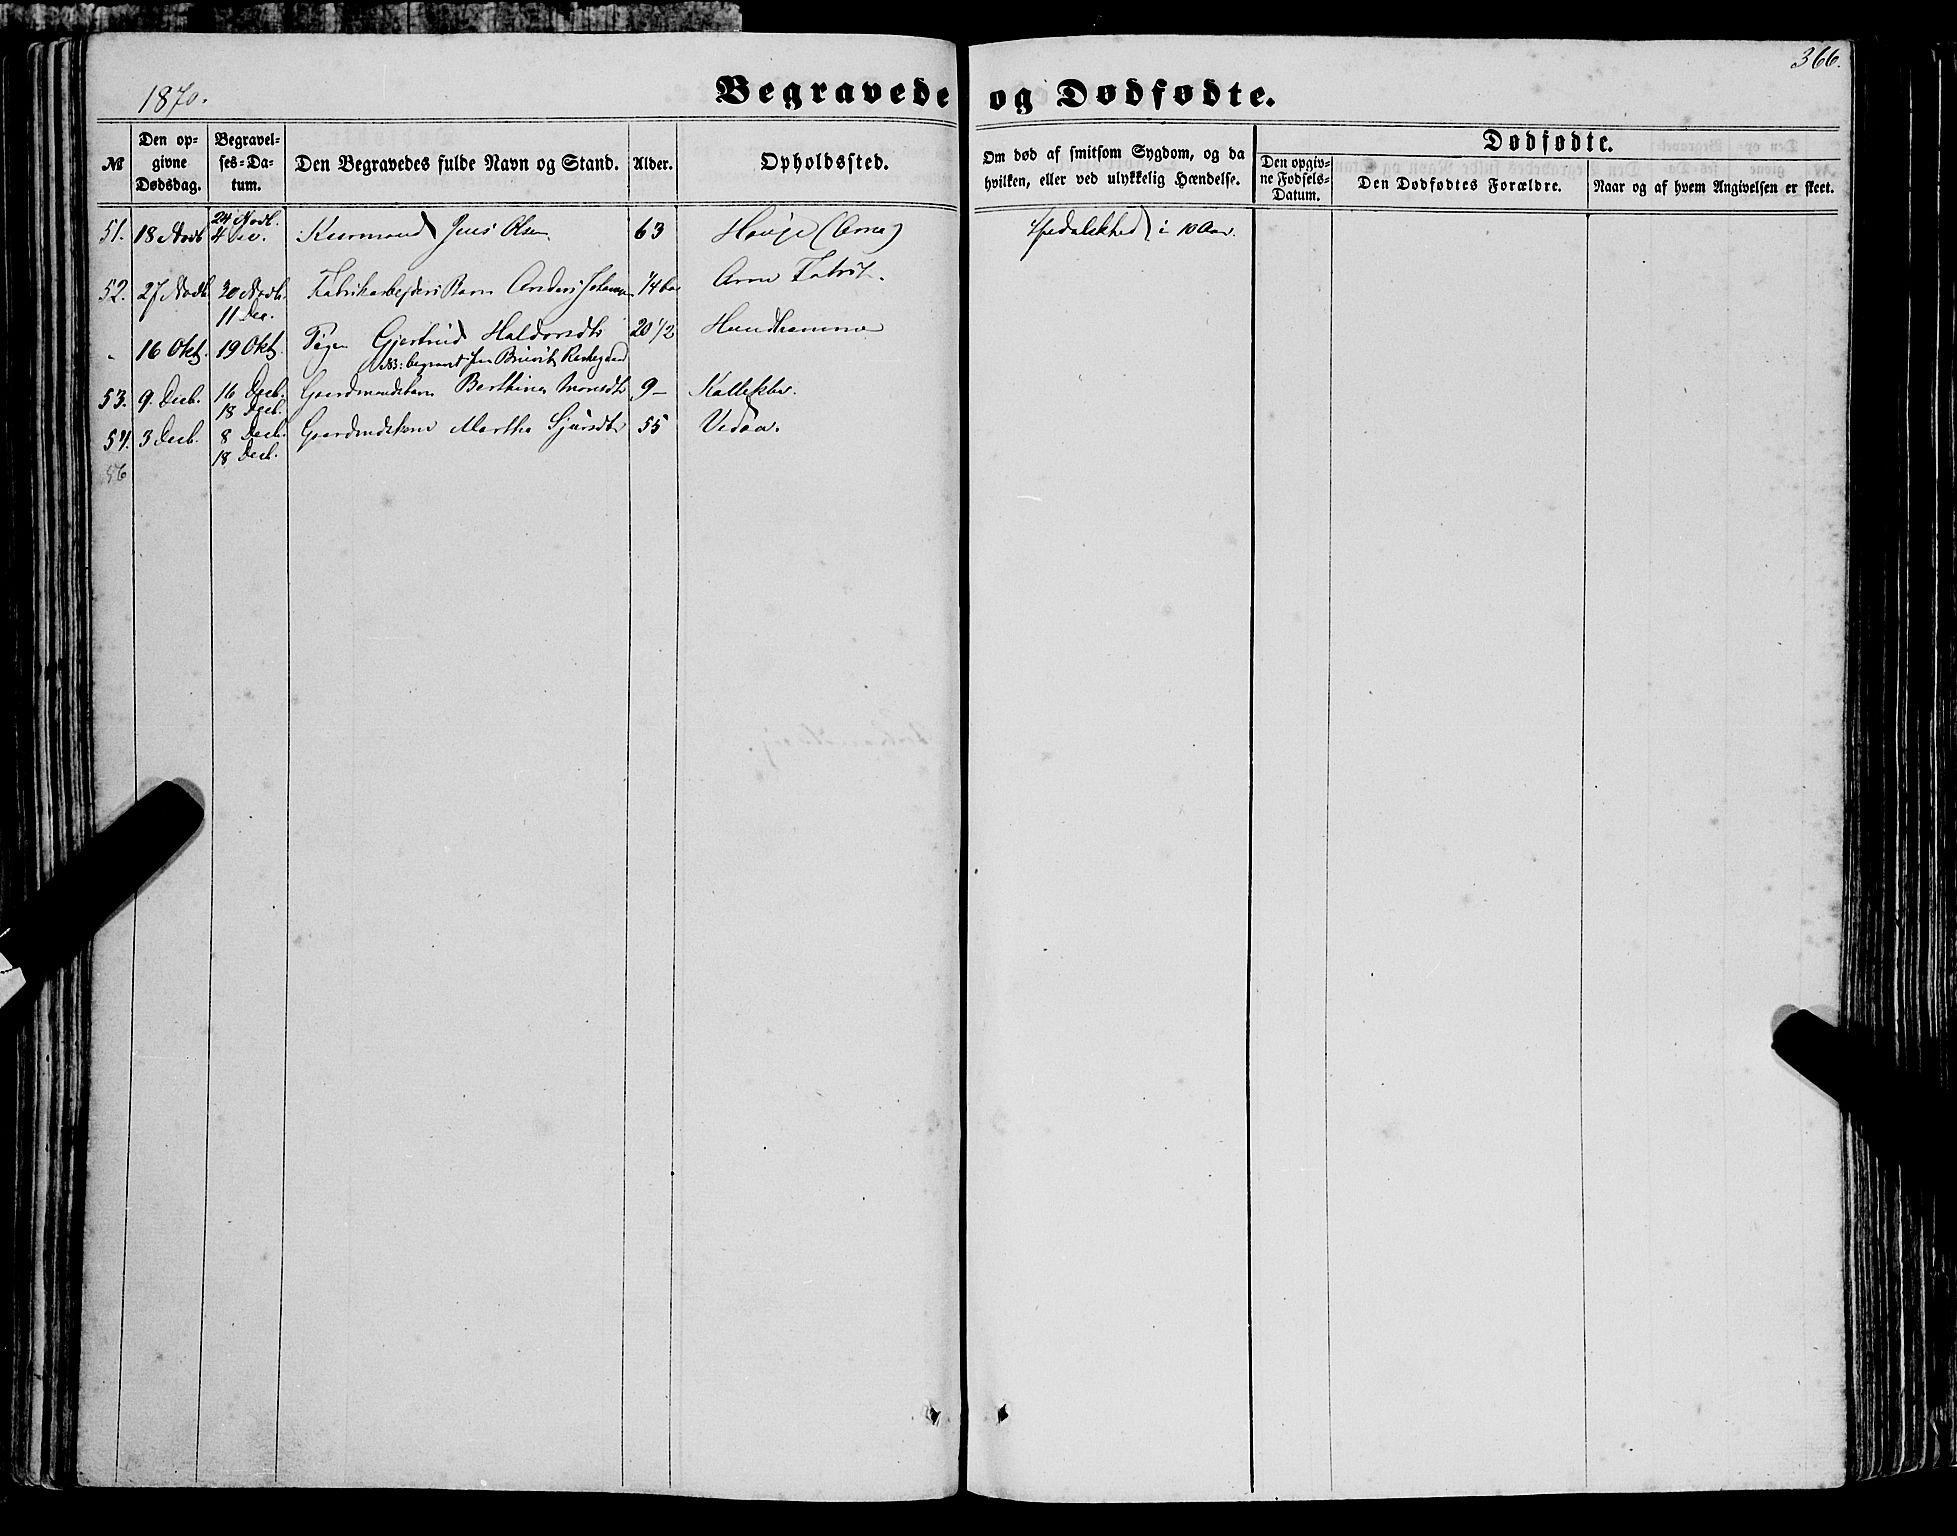 366.
1870.
Begravede og Dødfødte.
№
Den opgivne Dødsdag.
Begravelses-Datum.
Den Begravedes fulde Navn og Stand.
Alder.
Opholdssted.
Om død af smitsom Sygdom, og da hvilken, eller ved ulykkelig Hændelse.
Dødfødte.
Den opgivne Fødsels-Datum.
Den Dødfødtes Forældre.
Naar og af hvem Angivelsen er skeet.
51. 18 Novb 24 Novb. Jens Olsen 63 Houge (Arna) Spedalskhed i 10 Aar.
52. 27 Novb. 30 Novb. Fabrikarbeiders Barn Anders 1/4 Aar Arne Fabrik.
11 Dec.
16 Okt. 19 Okt. Pigen Gjertrud Haldorsdtr 20 1/2
NB: begravet
53. 9 Decb. 16 Decb. Gaardmandsbarn Berthina Monsdtr 9
18 Decb.
54. 3 Decb. 8 Decb. Martha Sjursdtr 55 Vedaa.
18 Decb.
56